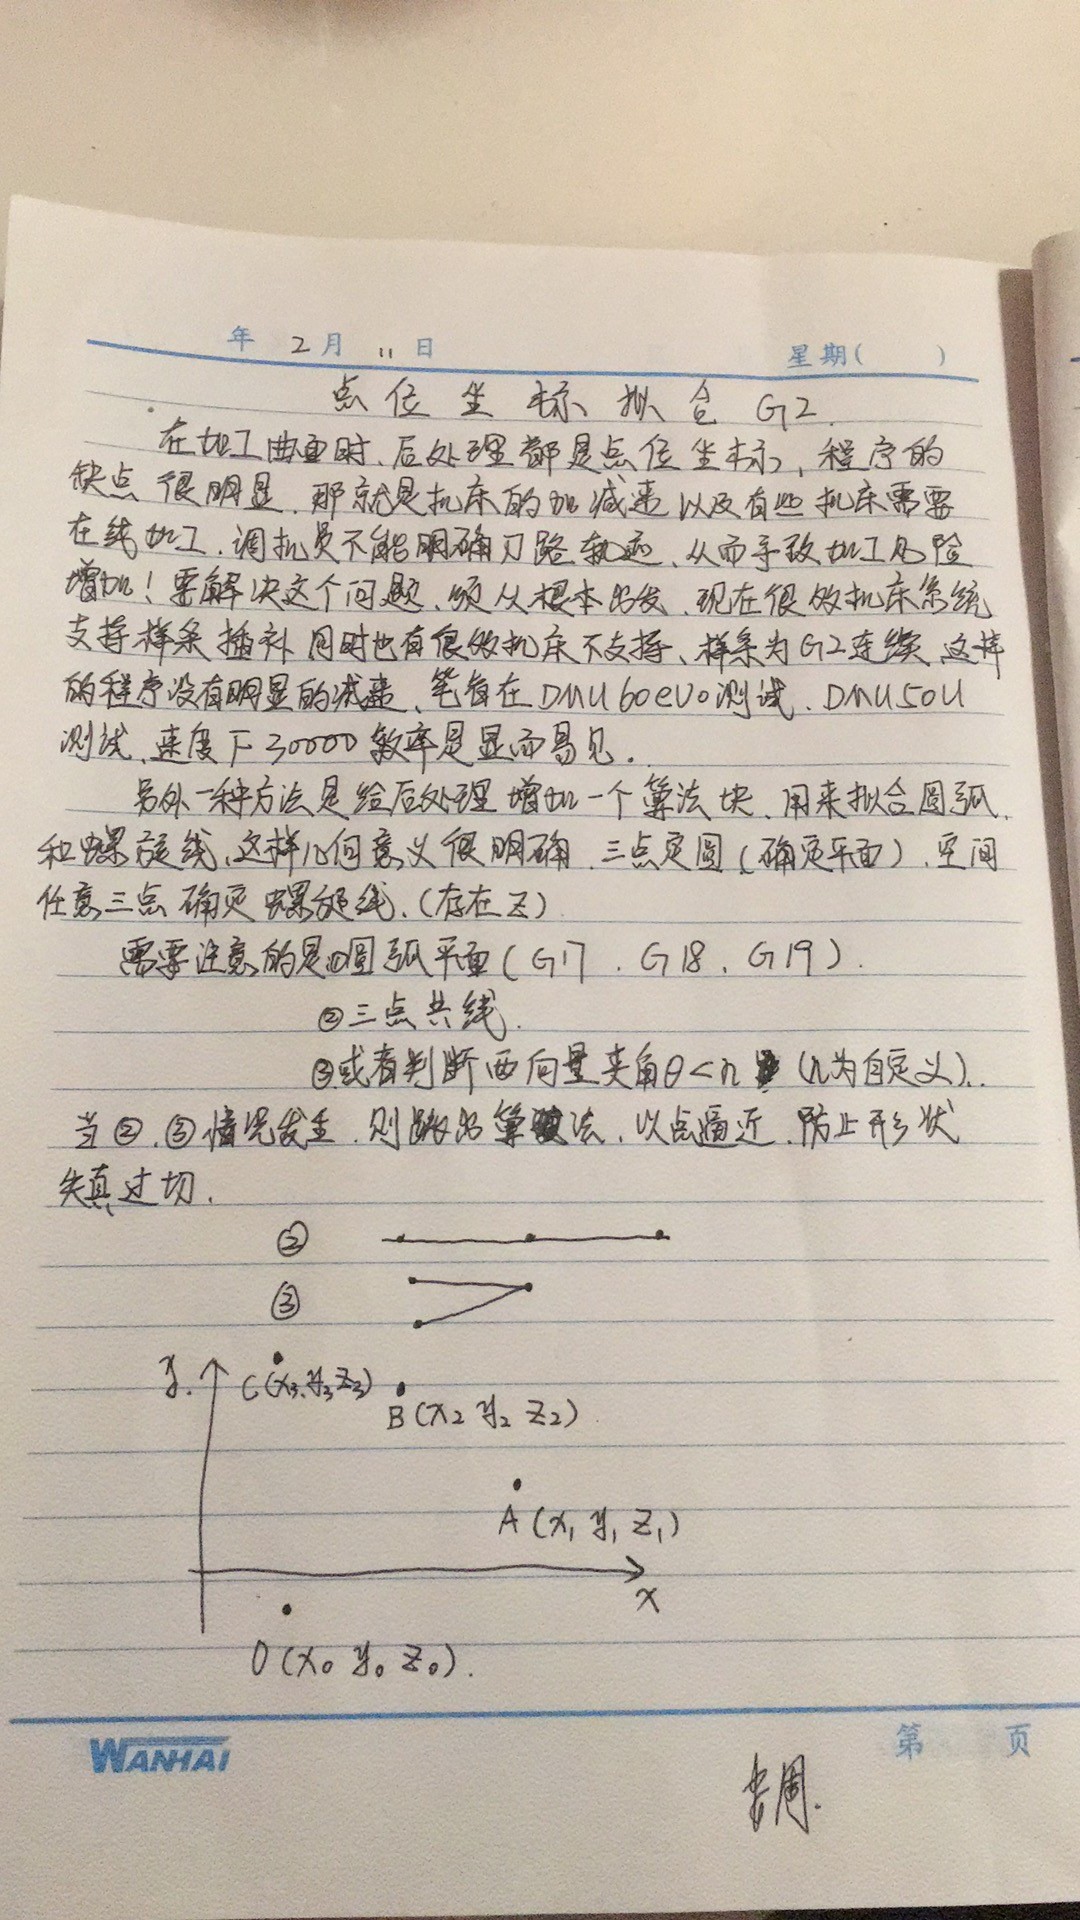 年 2月 11日 星期( )
点位坐标拟合 G2
在加工曲面时、后处理都是点位坐标,程序的
缺点很明显、那就是机床的加减速以及有些机床需要
在线加工、调机员不能明确刀路轨迹、从而导致加工风险
增加!要解决这个问题、须从根本出发、现在很多机床系统
支持样条插补 同时也有很多机床不支持、样条为G2连续 这样
的程序没有明显的减速、笔者在DMU60evo测试、DMU50U
测试、速度F30000效率是显而易见.
另外一种方法是给后处理增加一个算法块、用来拟合圆弧、
和螺旋线、这样几何意义很明确、三点定圆(确定平面)、空间
任意三点确定螺旋线、(存在Z)
需要注意的是①圆弧平面(G17、G18、G19).
②三点共线.
③或者判断两向量夹角θ<n (n为自定义)..
当②、③情况发生、则跳出算法、以点逼近、防止形状
失真过切.
②
③
y. C(x3、y3 z3)
B(x2 y2 z2)
A(x1 y1 z1)
x
O(x0 y0 z0).
WANHAI 第 页
周.